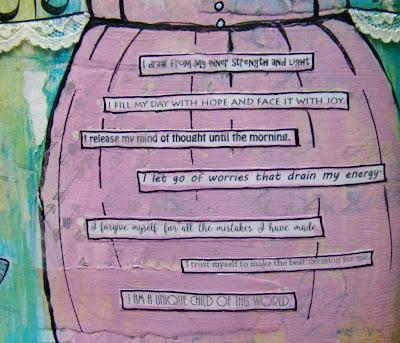 I draw from my inner strength and light
I FILL MY DAY WITH HOPE AND FACE IT WITH JOY.
I release my mind of thought until the morning.
I let go of worries that drain my energy.
I forgive myself for all the mistakes I have made.
I trust myself to make the best decision for me.
I AM A UNIQUE CHILD OF THIS WORLD.